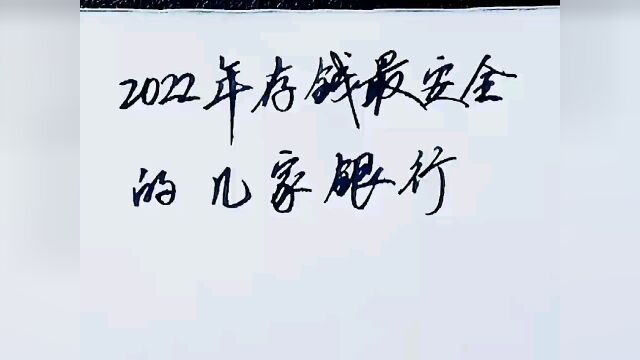 2022年存钱最安全
的几家银行